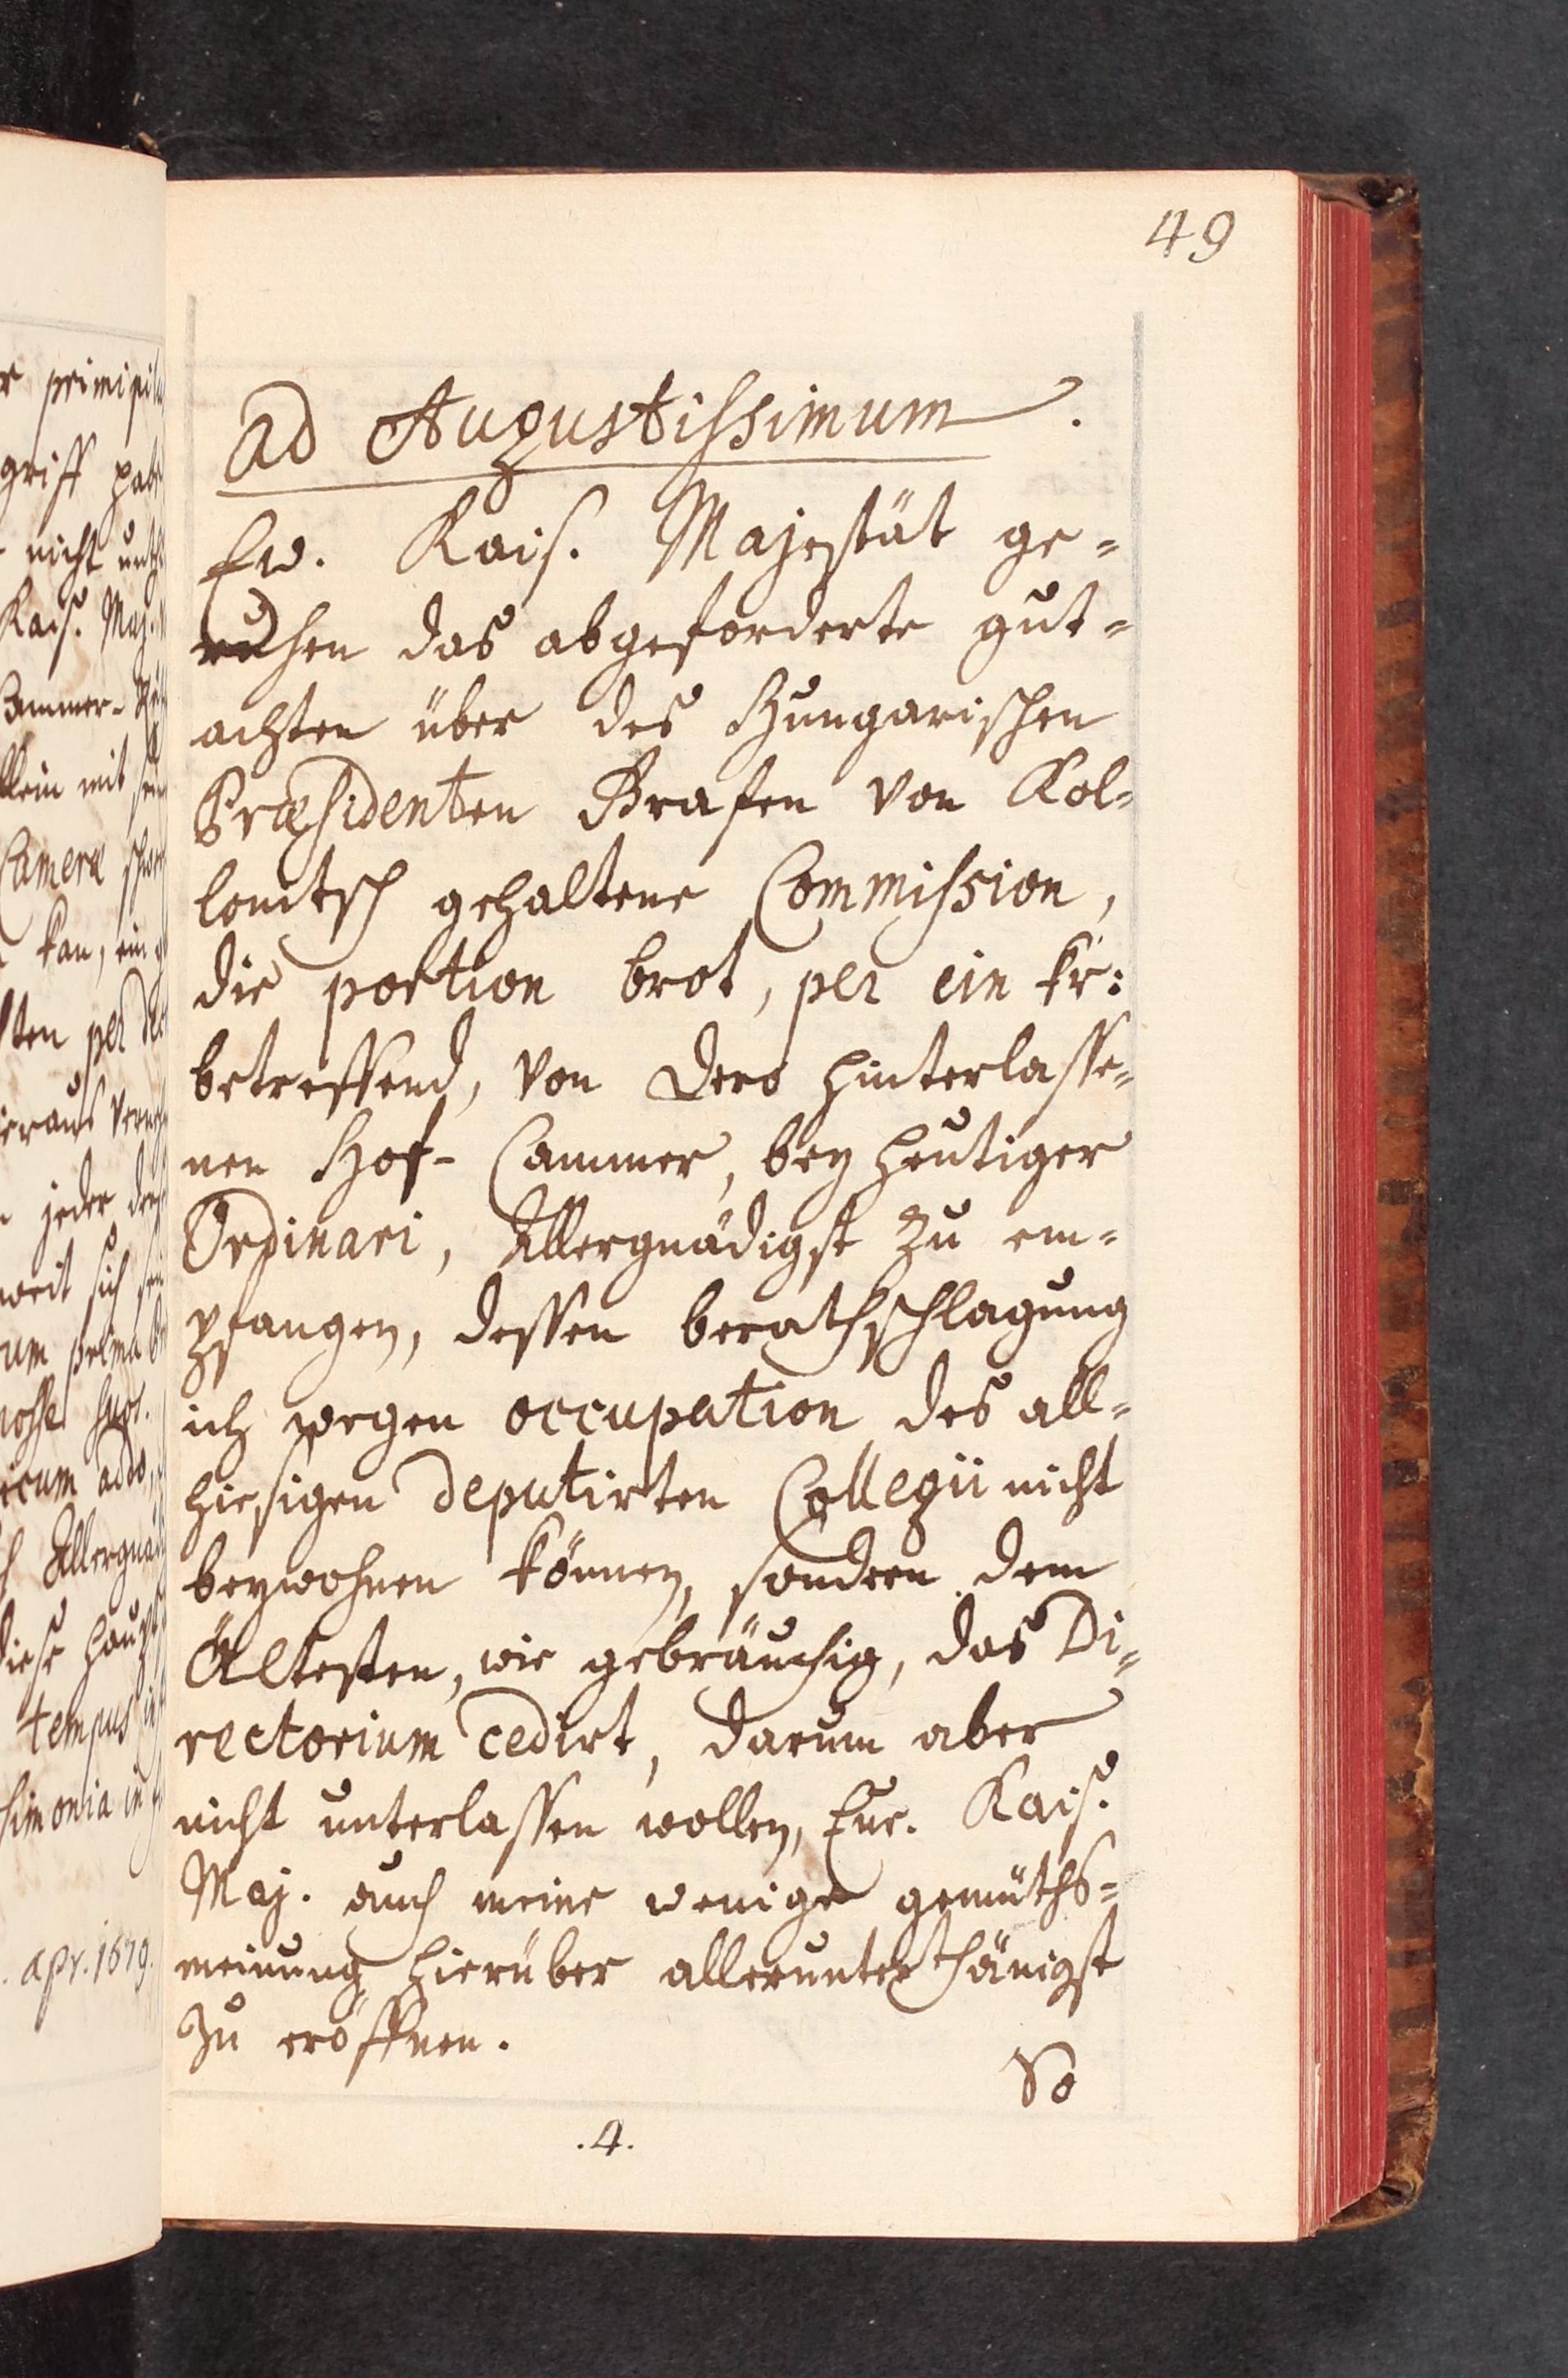 49
Ad Augustissimum.
Ew. Kais. Majestät ge-
ruhen das abgeforderte gut-
achten über des Hungarischen
Præsidenten Grafen von Kol-
lonitsch gehaltene Commission,
die portion brot, per ein kr:
betreffend, von Dero hinterlasse-
nen Hof-Cammer, bey heutiger
Ordinari, Allergnädigst zu em-
pfangen, dessen berathschlagung
ich wegen occupation des all-
hiesigen deputirten Collegii nicht
beywohnen können, sondern dem
Ältesten, wie gebräuchig, das Di-
rectorium cedirt, darum aber
nicht unterlassen wollen, Eur. Kais.
Maj. auch meine wenige gemüths-
meinung hierüber allerunterthänigst
zu eröffnen.
So
.4.
primipil
griff
nicht
Kais. Maj.
Cammer-
llein mit
Cameræ
kan, ein
ten per
jeder
weit sich
um prima
icum addo,
Allergnäd
diese haupt
tempus
simonia in
. apr. 1679.